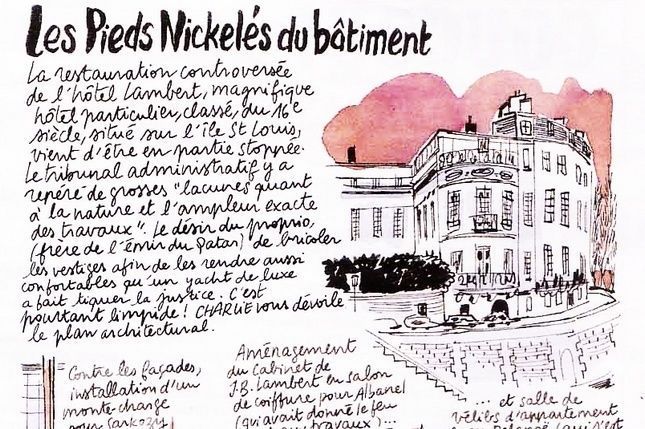 Les Pieds Nickelés du bâtiment
La restauration controversée
de l'hôtel Lambert, magnifique
hôtel particulier, classé, du 16e
siècle, situé sur l'île St Louis,
vient d'être en partie stoppée.
Le tribunal administratif y a
repéré de grosses "lacunes quant
à la nature et l'ampleur exacte
des travaux". Le désir du proprio,
(frère de l'émir du Qatar) de bricoler
les vestiges afin de les rendre aussi
confortables qu'un yacht de luxe
a fait tiquer la justice. C'est
pourtant limpide! CHARLIE vous dévoile
le plan architectural.
Contre les façades,
installation d'un
monte-charge
pour Sarkozy
Aménagement
du Cabinet de
J.B. Lambert en salon
de coiffure pour Albanel
(qui avait donné le feu
aux travaux)...
... et salle de
vélibs d'appartement
(qui s'est